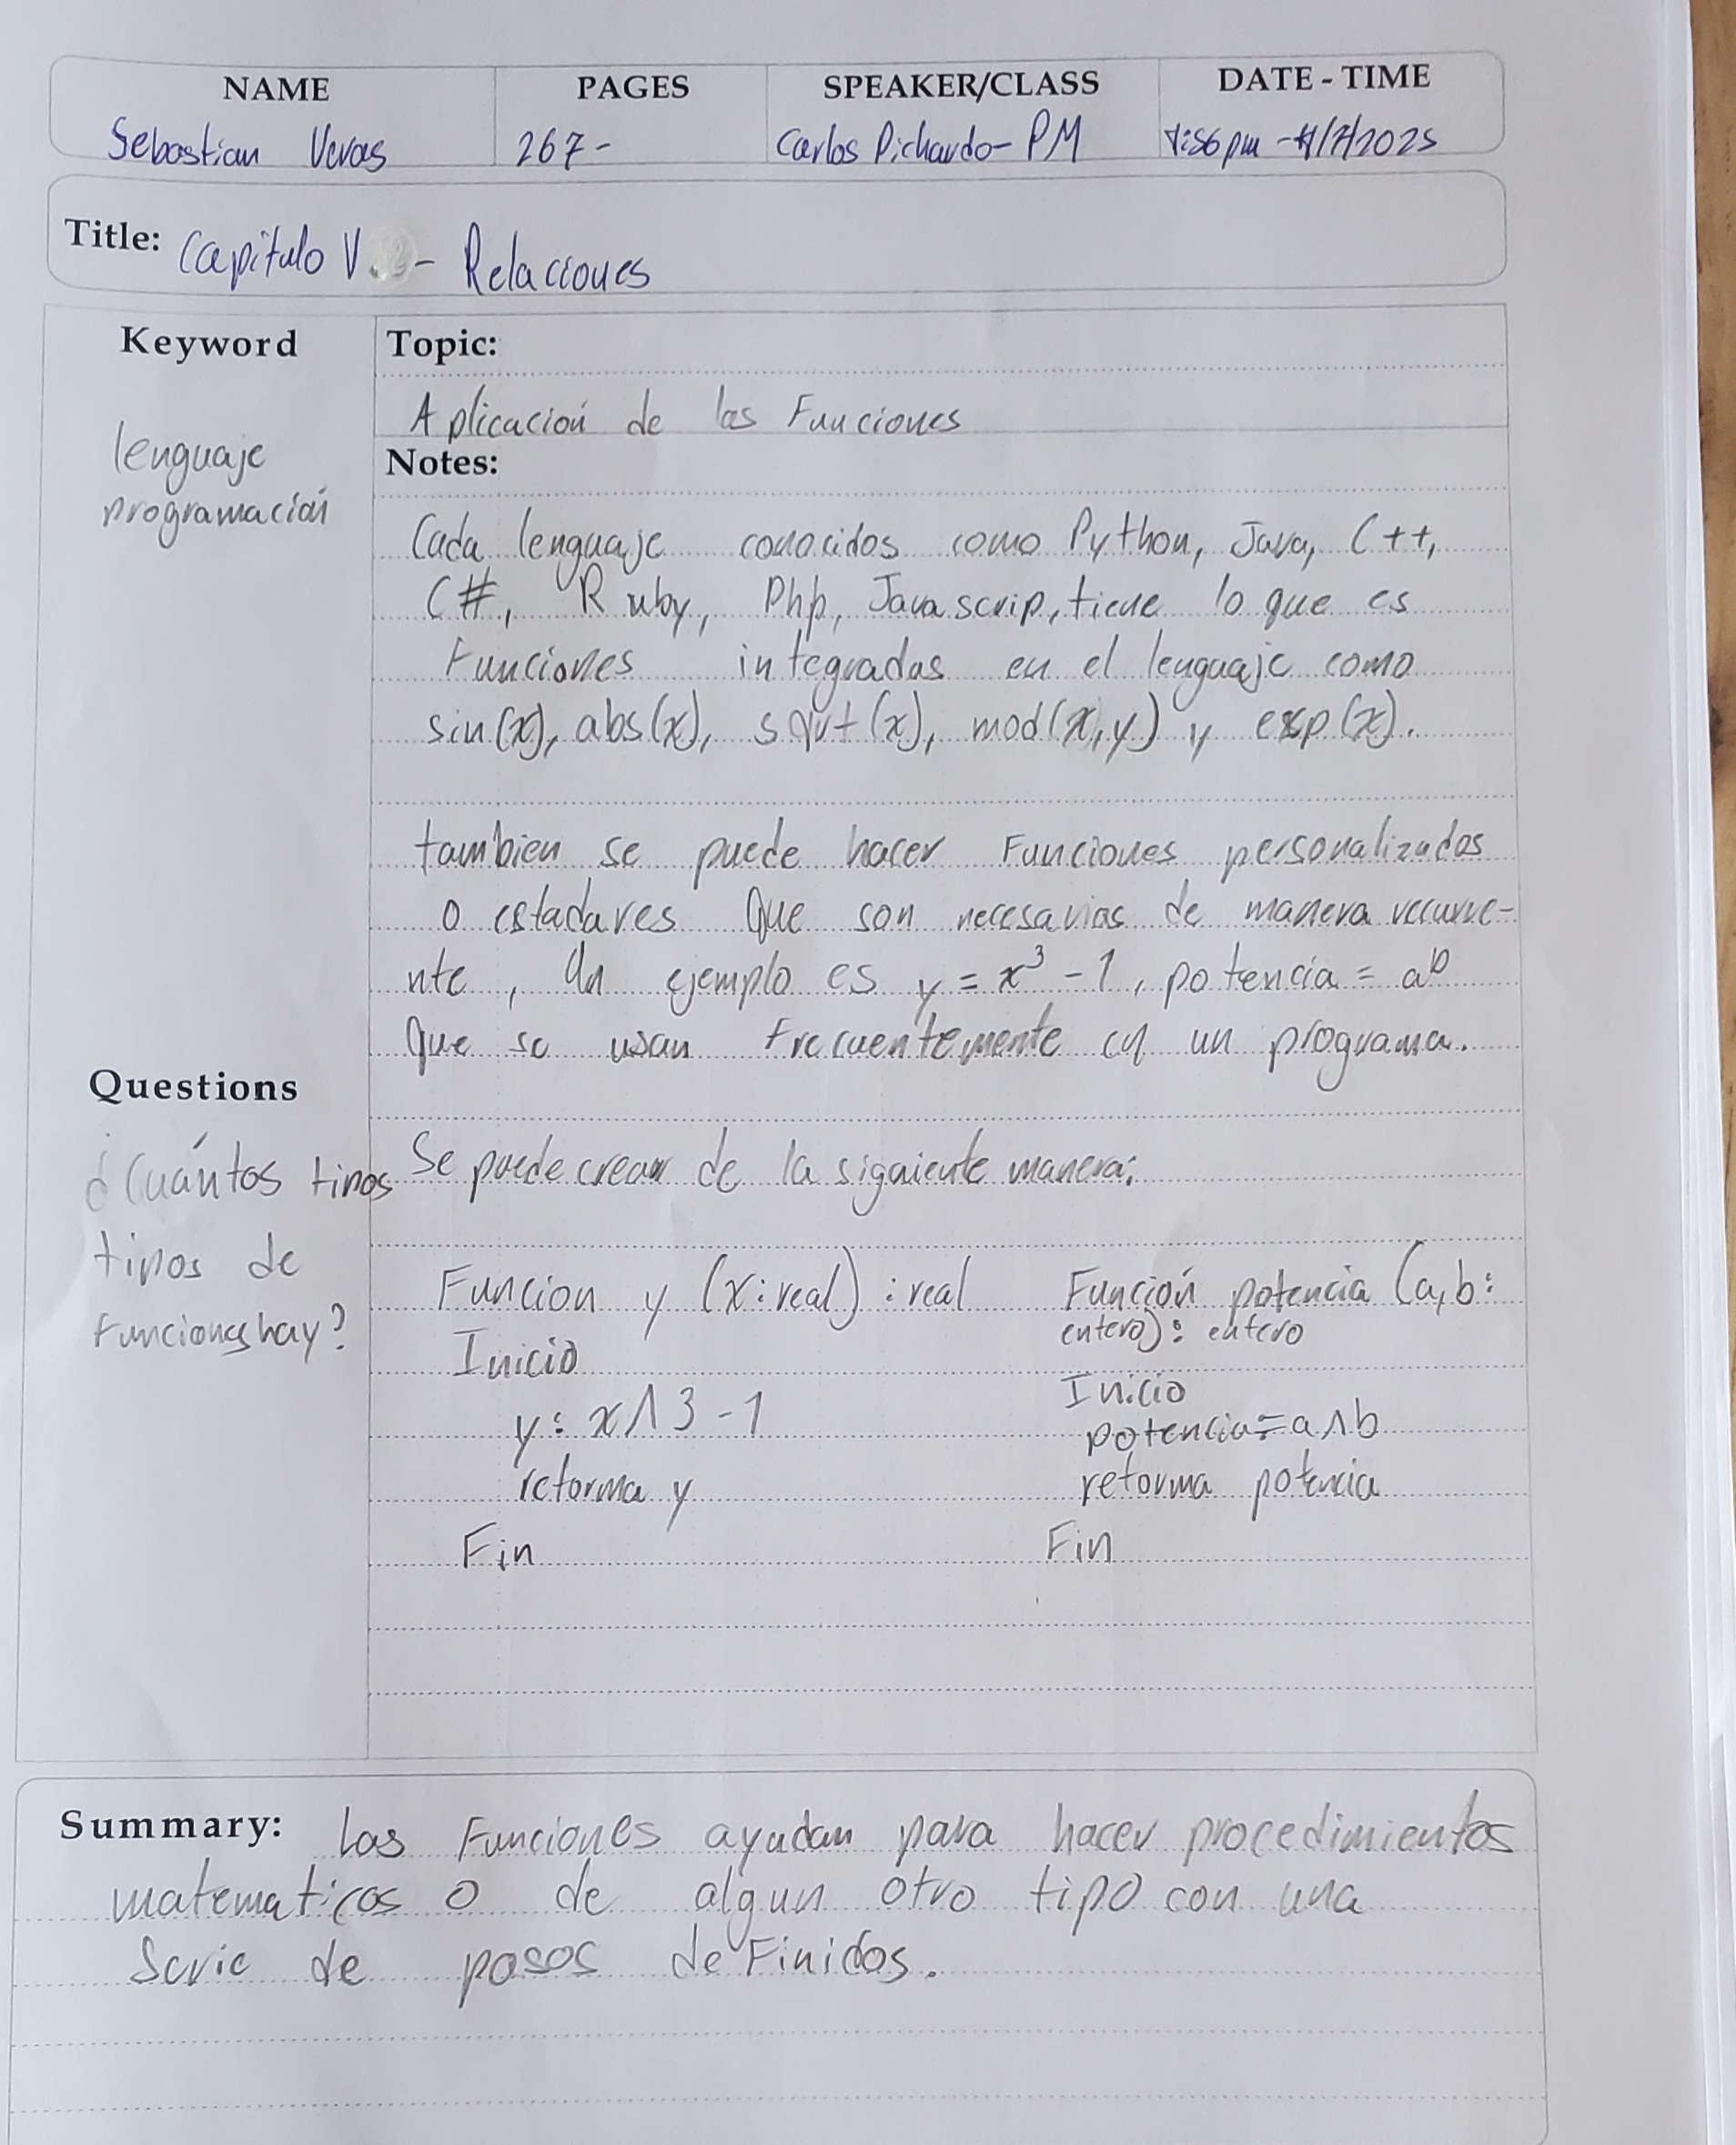 NAME PAGES SPEAKER/CLASS DATE - TIME
Sebastian Veras 267- Carlos Pichardo- PM :56 pm - /7/2025
Title: Capitulo V - Relaciones
Keyword
lenguaje
programación
Topic:
Aplicación de las Funciones
Notes:
Cada lenguaje conocidos como Python, Java, C++,
C#, Ruby, Php, Javascrip, tiene lo que es
Funciones integradas en el lenguaje como
sin(x), abs(x), sqrt(x), mod(x,y) y exp(x).
tambien se puede hacer Funciones personalizadas
o estadares que son necesarias de manera recurre-
nte, Un ejemplo es y = x³ - 1, potencia = aᵇ
que se usan frecuentemente en un programa.
Questions
¿Cuántos tipos
tipos de
Funciones hay?
Se puede crear de la siguiente manera:
Funcion y (x:real) : real
Inicio
y: x∧3-1
retorma y
Fin
Función potencia (a,b:
entero): entero
Inicio
potencia= a∧b
retorma potencia
Fin
Summary: Las Funciones ayudan para hacer procedimientos
matematicos o de algun otro tipo con una
Serie de pasos deFinidos.